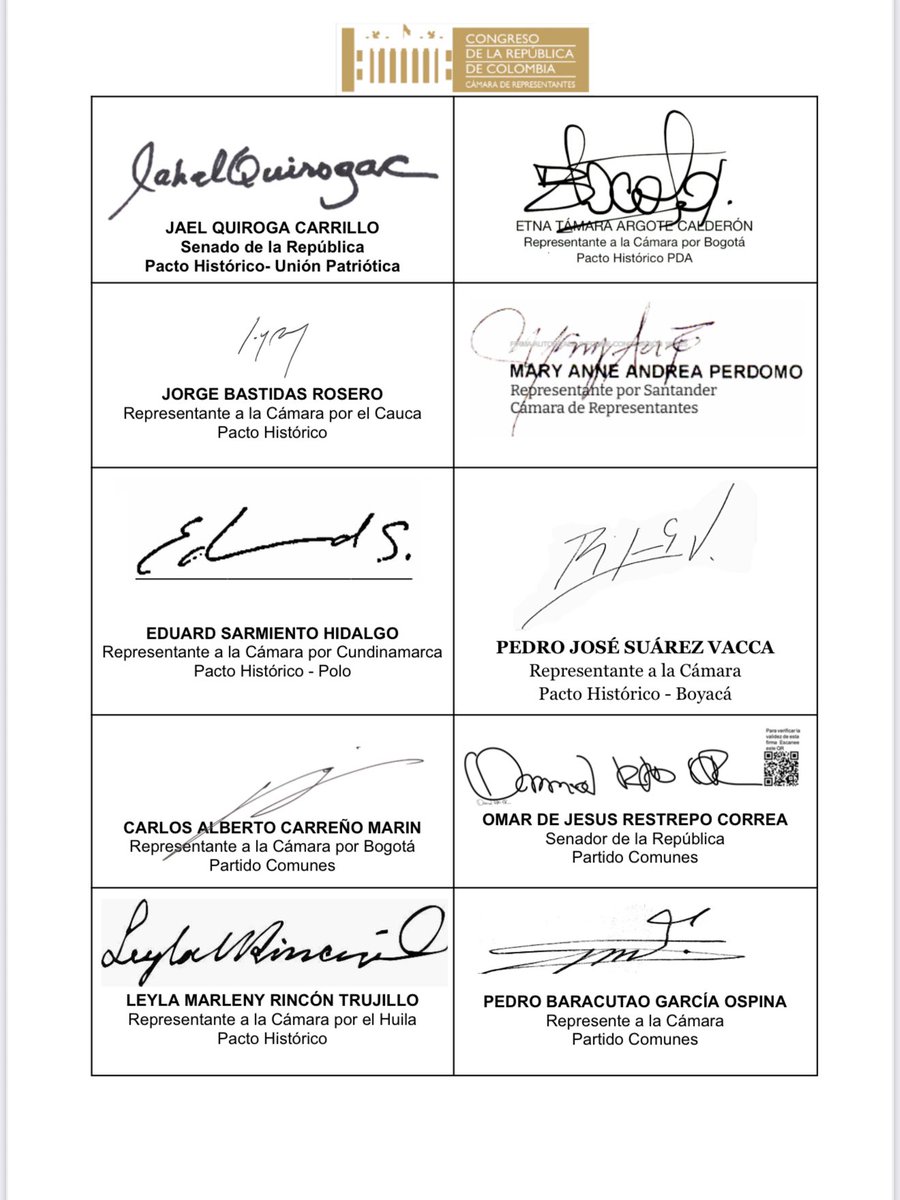 CONGRESO
DE LA REPÚBLICA
DE COLOMBIA
CÁMARA DE REPRESENTANTES
Jahel Quiroga C
JAEL QUIROGA CARRILLO
Senado de la República
Pacto Histórico- Unión Patriótica
ETNA TÁMARA ARGOTE CALDERÓN
Representante a la Cámara por Bogotá
Pacto Histórico PDA
JORGE BASTIDAS ROSERO
Representante a la Cámara por el Cauca
Pacto Histórico
MARY ANNE ANDREA PERDOMO
Representante por Santander
Cámara de Representantes
Eduard S.
EDUARD SARMIENTO HIDALGO
Representante a la Cámara por Cundinamarca
Pacto Histórico - Polo
PEDRO JOSÉ SUÁREZ VACCA
Representante a la Cámara
Pacto Histórico - Boyacá
CARLOS ALBERTO CARREÑO MARIN
Representante a la Cámara por Bogotá
Partido Comunes
Para verificar la
validez de esta
firma Escanee
este QR
OMAR DE JESUS RESTREPO CORREA
Senador de la República
Partido Comunes
Leyla M Rincón
LEYLA MARLENY RINCÓN TRUJILLO
Representante a la Cámara por el Huila
Pacto Histórico
PEDRO BARACUTAO GARCÍA OSPINA
Represente a la Cámara
Partido Comunes